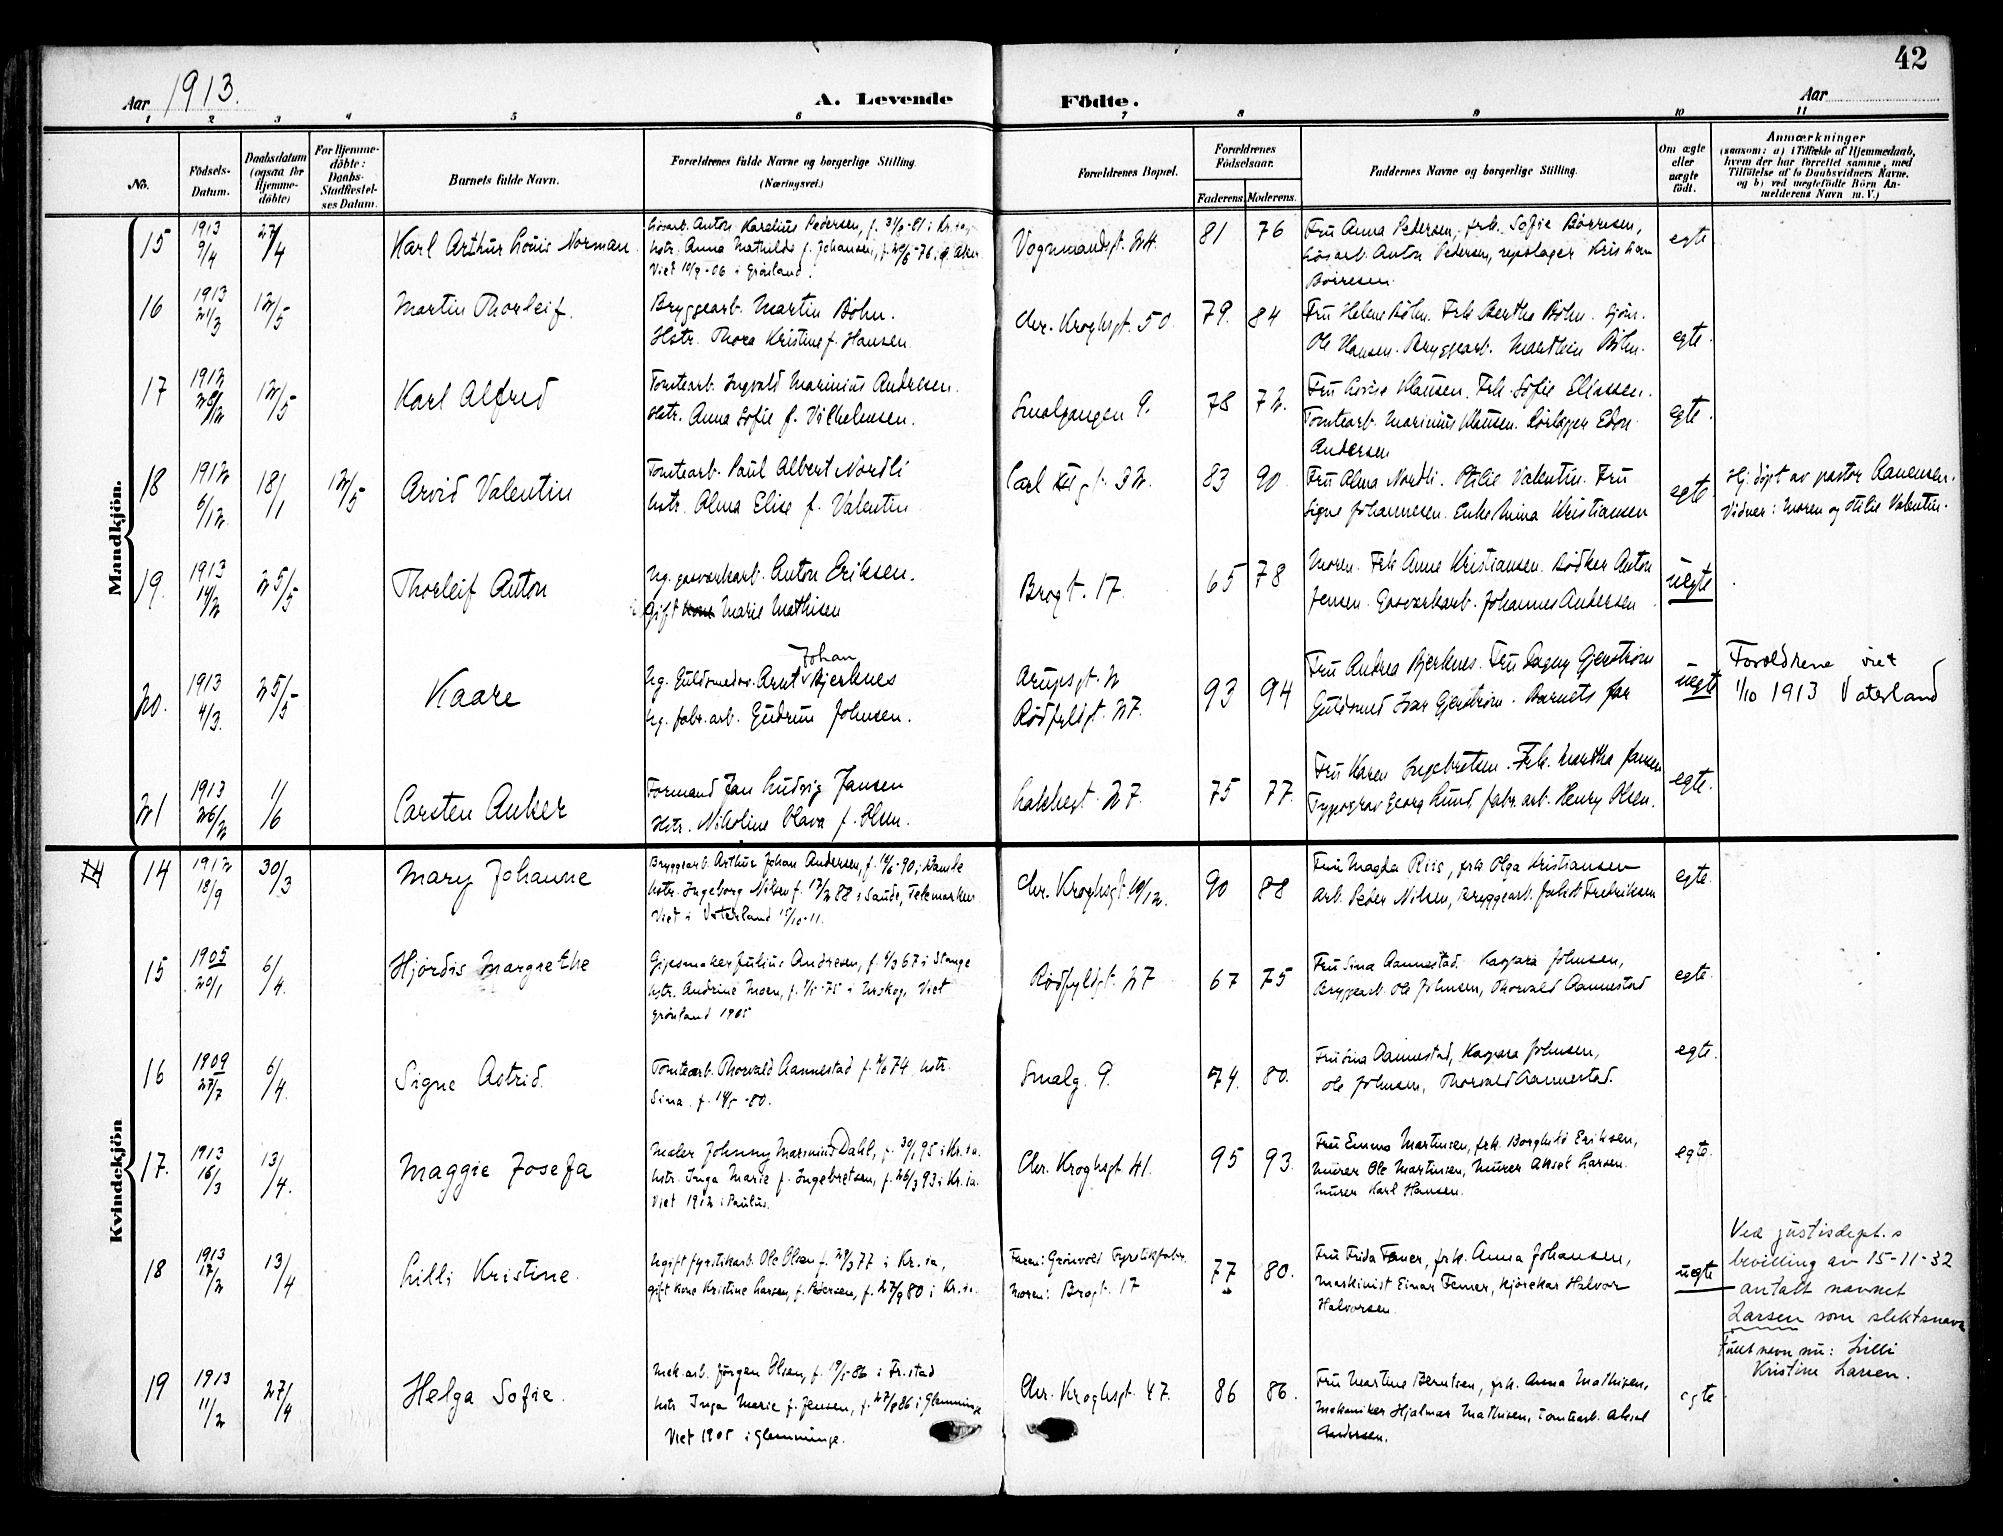 42
Aar 1913.
A. Levende Födte.
Aar
1 2 3 4 5 6 7 8 9 10 11
No.
Födsels-Datum.
Daabsdatum (ogsaa for Hjemme-döbte)
For Hjemme-döbte: Daabs-Stadfæstel-ses Datum.
Barnets fulde Navn.
Forældrenes fulde Navne og borgerlige Stilling. (Næringsvei.)
Forældrenes Bopæl.
Forældrenes Födselsaar.
Faderens. Moderens.
Faddernes Navne og borgerlige Stilling.
Om ægte eller uægte födt.
Anmærkninger
(saasom: a) i Tilfælde af Hjemmedaab, hvem der har forrettet samme, med Tilföielse af to Daabsvidners Navne. og b) ved uægtefödte Börn Anmelderens Navn m. V.)
Mandkjön.
15 1913 9/4 27/4 Karl Arthur Louis Norman
Løsarb. Anton Karelius Pedersen, f. -81 i Kr.ia,
hstr. Anna Mathilde f. Johansen, f. 20/6-76, Aker
Viet 10/9-06 i Grønland.
Vognmandsgt. 24. 81 76
Fru Anna Pedersen, frk. Sofie Børresen,
Løsarb. Anton Pedersen, repslager Kristian
Børresen
egte
16 1913 21/3 12/5 Martin Thorleif.
Bryggearb. Martin Bøhn.
Hstr. Thora Kristine f. Hansen.
Chr. Kroghsgt. 50. 79. 84
Fru Helene Bøhn. Frk Bertha Bøhn. Sjøm.
Ole Hansen. Bryggearb. Marthin Bøhn.
egte.
17 1912 28/12 12/5 Karl Alfred
Tomtearb. Ingvald Marinius Andresen.
Hstr. Anna Sofie f. Vilhelmsen.
Smalgangen 9. 78 72.
Fru Lovise Klausen. Frk. Sofie Eliassen.
Tomtearb. Marinius Klausen. Edon
Andersen
egte.
18 1912 6/12 18/1 12/5 Arvid Valentin
Tomtearb. Paul Albert Nordli
hstr. Alma Elise f. Valentin
Carl XII gt. 32. 83 90
Fru Alma Nordli. Otilie Valentin. Fru
Signe Johannesen. Enke Mina Kristiansen
egte
Hj. døpt av pastor Aanensen.
Vidner: Moren og Otilie Valentin.
19. 1913 14/2 25/5 Thorleif Anton
Ug. gasverkarb. Anton Eriksen.
Gift Marie Mathisen
Brogt. 17. 65 78
Moren. Frk Anne Kristiansen. Bødker Anton
Jensen. Gasverkarb. Johannes Andersen
uegte
20. 1913 4/3. 25/5 Kaare
Johan
Ug. Guldsmedsv. Arnt Bjerknes
Ug. fabr.arb. Gudrun Johnsen.
Arupsgt. 2
Rødfyldgt. 27. 93 94
Fru Andrea Bjerknes. Fru Dagny Gjerstrøm
Guldsmed Ivar Gjerstrøm. Barnets far
uegte
Foreldrene viet
1/10 1913 Vaterland
21 1913 26/2 1/6 Carsten Anker
Formand Jan Ludvig Jansen
Hstr. Nikoline Olava f. Olsen.
Lakkegt. 27. 75 77.
Fru Karen Ingebretsen. Frk. Martha Jansen
Typograf Georg Lund, fabr. arb. Henry Olsen.
egte.
Kvindekjön
14 1912 18/9 30/3 Mary Johanne
Bryggearb. Arthur Johan Andersen, f. -90,
hstr. Ingeborg Nilsen f. 88 i Saude, Telemarken
Viet i Vaterland 15/10-11.
Chr. Kroghsgt. 10/12. 90 88
Fru Magda Riis, frk Olga Kristiansen
Arb. Peder Nilsen, Bryggearb. Jakob Fredriksen
egte.
15 1905 20/1 6/4. Hjørdis Margrethe
Gipsmaker Julius Andresen, f. 67 i Stange
hstr. Andrine Moen, f. 75 i Urskog, Viet
Grønland 1905
Rødfyldgt. 27 67 75
Fru Sina Aannestad. Kaspara Johnsen,
Bryggearb. Ole Johnsen, Thorvald Aannestad
egte.
16 1909 27/7 6/4. Signe Astrid.
Tomtearb. Thorvald Aannestad f. 74. hstr.
Sina. f. -80.
Smalg. 9. 74. 80.
Fru Sina Aannestad, Kaspara Johnsen,
Ole Johnsen, Thorvald Aannestad.
egte.
17. 1913 16/3 13/4. Maggie Josefa
Maler Johnny Marinius Dahl, f. 30/1 95 i Kr.ia.
hstr. Inga Marie f. Ingebretsen, f. 26/3 93 i Kr.ia.
Viet 1912 i Paulus.
Chr. Kroghsgt. 41. 95 93.
Fru Emma Martinsen, frk. Borghild Eriksen,
Murer Ole Martinsen, Murer Aksel Larsen.
Murer Karl Hansen.
egte.
18 1913 17/2 13/4 Lilli Kristine.
Ugift fyrstikarb. Ole Olsen f. 29/3 77 i Kr.ia,
gift kone Kristine Larsen, f. Pedersen, f. 27/9 80 i Kr.ia.
Faren: Grønvolds Fyrstikfabr.
Moren: Brogt. 17 77 80.
Fru Frida Femer, frk. Anna Johansen,
Maskinist Einar Femer, kjørekar Halvor
Halvorsen.
uegte
Ved justisdept.s
bevilling av 15-11-32
antatt navnet
Larsen som slektsnavn
Fullt navn nu: Lilli
Kristine Larsen.
19 1913 11/2 27/4 Helga Sofie.
Mek.arb. Jørgen Olsen, f. -86 i Fr.stad
hstr Inga Marie f. Jensen, f. 86 i Glemminge
Viet 1905 i Glemminge.
Chr. Kroghsgt. 47. 86 86.
Fru Martine Berntsen, frk. Anna Mathisen,
Mekaniker Hjalmar Mathisen, tomtearb. Aksel
Andersen.
egte